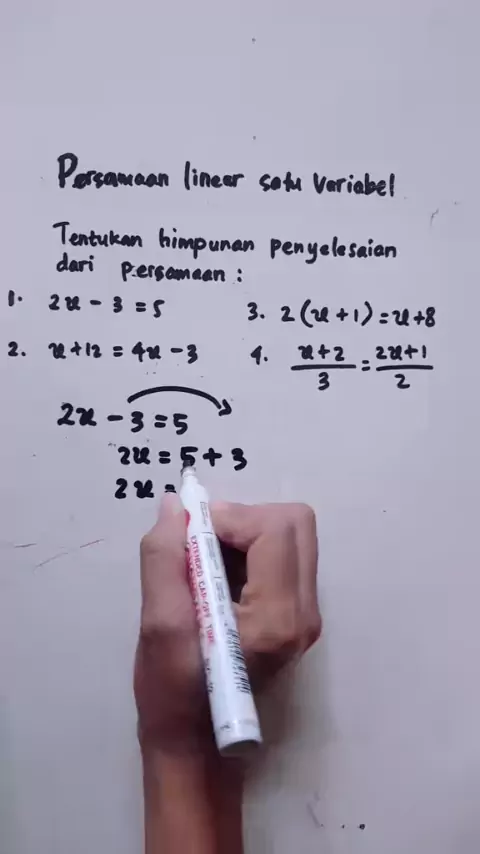 Persamaan linear satu variabel
Tentukan himpunan penyelesaian
dari persamaan :
1. 2x - 3 = 5
2. x + 12 = 4x - 3
3. 2(x + 1) = x + 8
4. (x + 2)/3 = (2x + 1)/2
2x - 3 = 5
2x = 5 + 3
2x =
EXTENDED CAP-OFF TIME